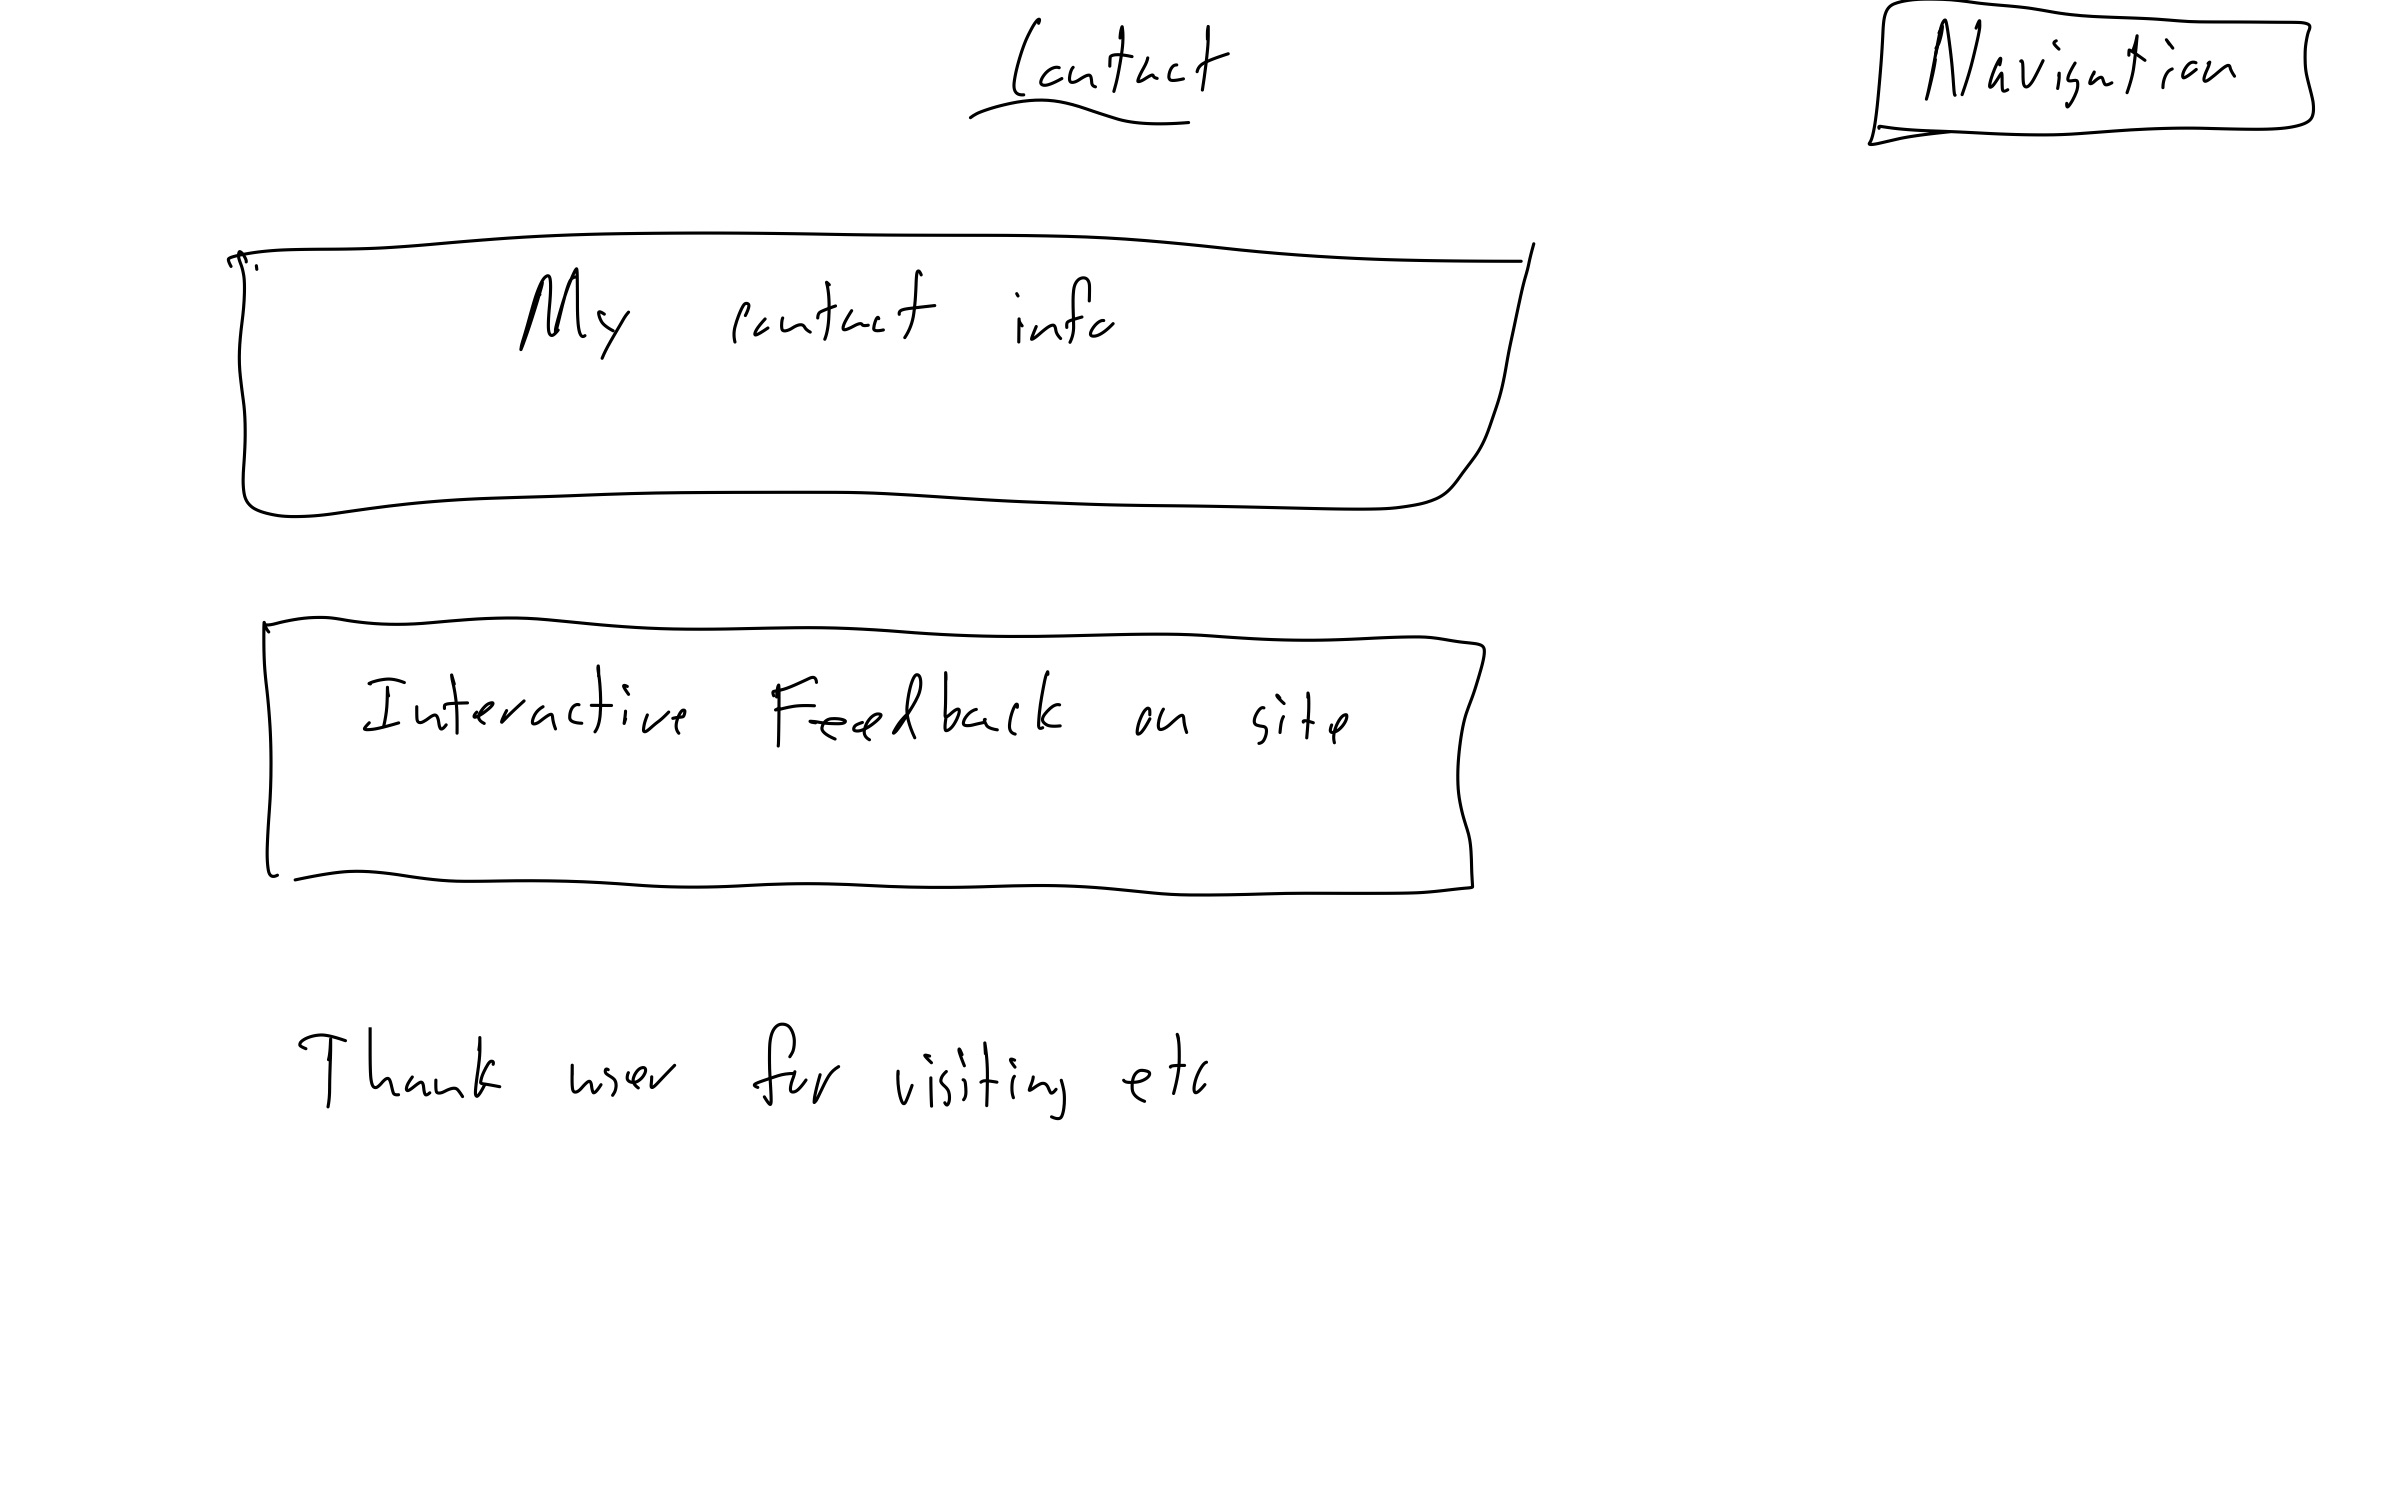 Contact
Navigation
My contact info
Interactive Feedback on site
Thank user for visiting etc